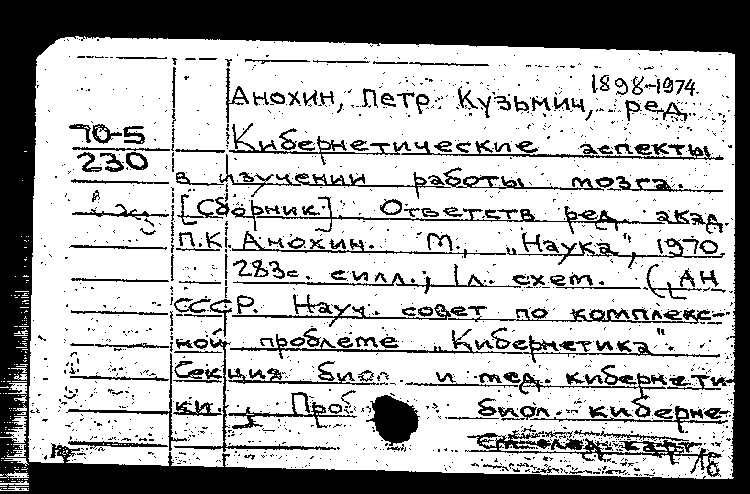 1898-1974
Анохин, Петр Кузьмич, ред.
70-5
230
Кибернетические аспекты
в изучении работы мозга.
[Сборник]. Ответств. ред. акад.
П.К. Анохин. М., „Наука", 1970
283с. с илл.; 1л. схем. (АН
СССР. Науч. совет по комплекс-
ной проблеме „Кибернетика".
Секция биол. и мед. кибернети-
ки. Проб биол. киберне-
См. след. карт.
1б